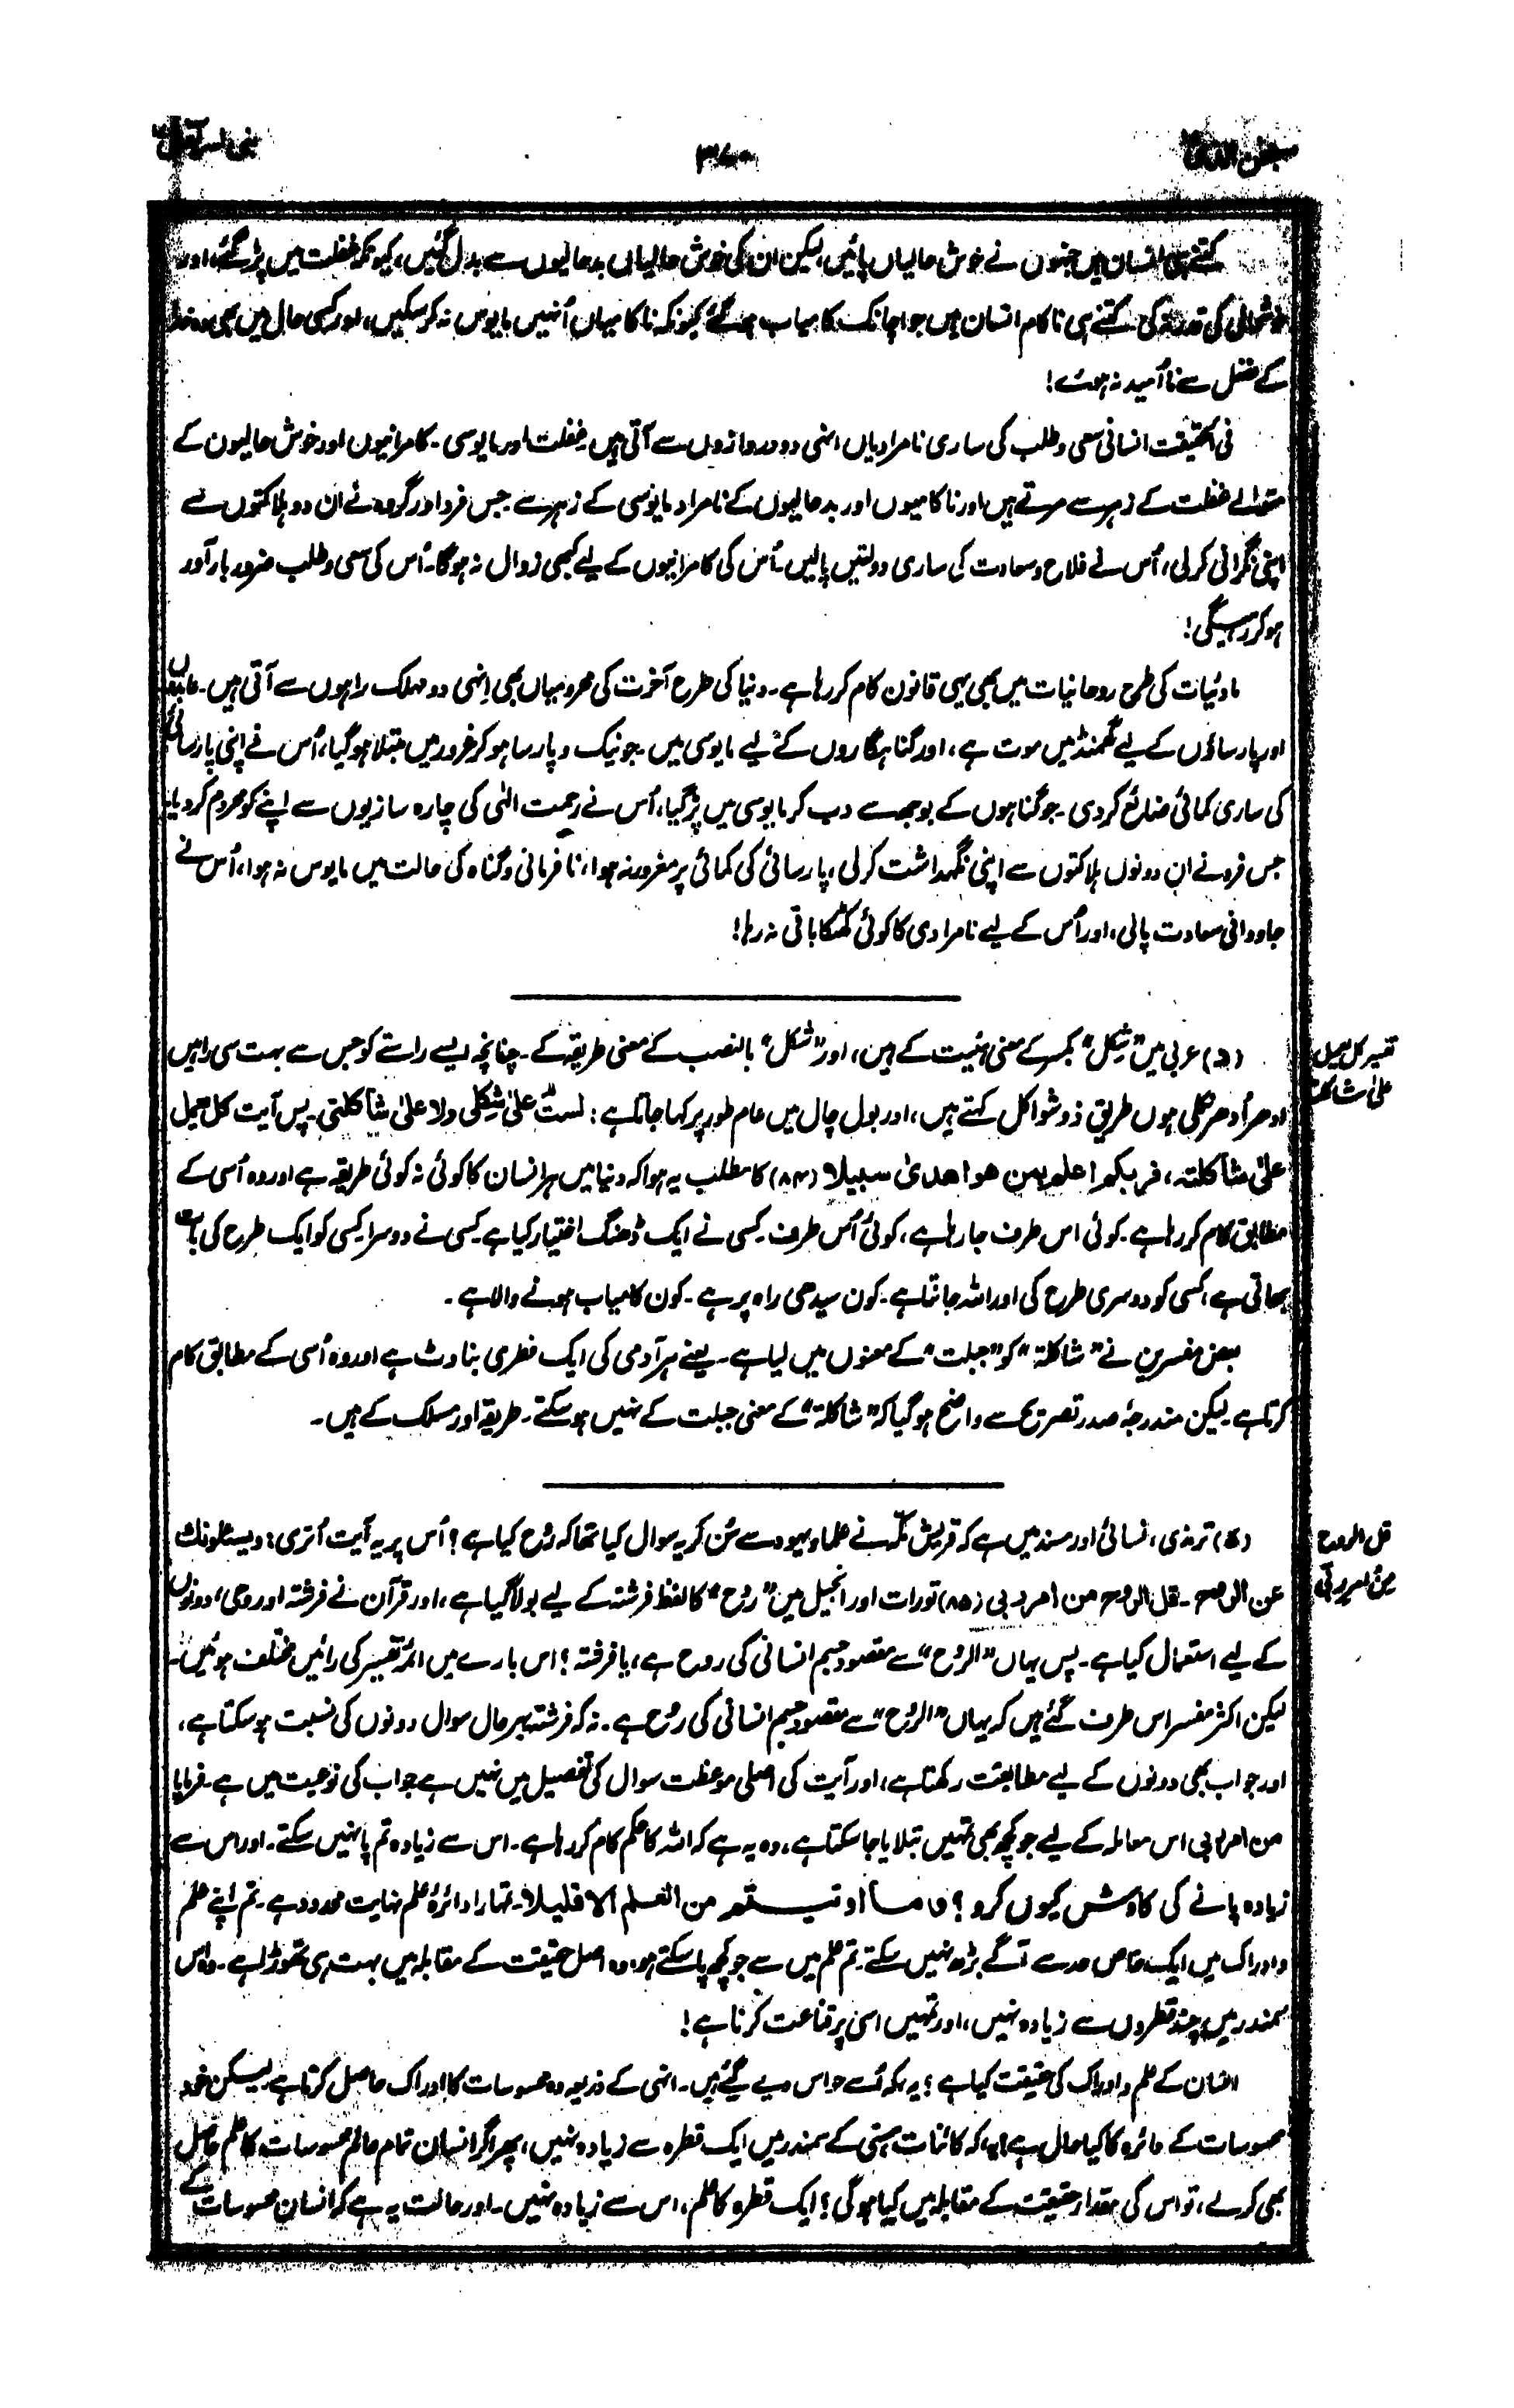 سبحٰن الذی
۳۷۰
بنی اسرآئیل
کتنے ہی انسان ہیں جنہوں نے خوش حالیاں پائیں لیکن ان کی خوش حالیاں بدحالیوں سے بدل گئیں، کیونکہ غفلت میں پڑ گئے، اور
خوشحالی کی قدر نہ کی۔ کتنے ہی ناکام انسان ہیں جو اچانک کامیاب ہو گئے کیونکہ ناکامیاں اُنہیں مایوس نہ کر سکیں، اور کسی حال میں بھی وہ خدا
کے فضل سے نا اُمید نہ ہوئے!
فی الحقیقت انسانی سعی و طلب کی ساری نامرادیاں انہی دو دروازوں سے آتی ہیں۔ غفلت اور مایوسی۔ کامرانیوں اور خوش حالیوں کے
متوالے غفلت کے زہر سے مرتے ہیں اور ناکامیوں اور بدحالیوں کے نامراد مایوسی کے زہر سے۔ جس فرد اور گروہ نے ان دو ہلاکتوں سے
اپنی نگرانی کر لی، اُس نے فلاح و سعادت کی ساری دولتیں پا لیں۔ اُس کی کامرانیوں کے لیے کبھی زوال نہ ہوگا۔ اُس کی سعی و طلب ضرور بارآور
ہو کر رہیگی!
مادیّات کی طرح روحانیات میں بھی یہی قانون کام کر رہا ہے۔ دنیا کی طرح آخرت کی محرومیاں بھی اِنہی دو مہلک راہوں سے آتی ہیں۔ عابدوں
اور پارساؤں کے لیے گھمنڈ میں موت ہے، اور گناہگاروں کے لیے مایوسی میں۔ جو نیک و پارسا ہو کر غرور میں مبتلا ہو گیا، اُس نے اپنی پارسائی
کی ساری کمائی ضائع کر دی۔ جو گناہوں کے بوجھ سے دب کر مایوسی میں پڑ گیا، اُس نے رحمت الٰہی کی چارہ سازیوں سے اپنے کو محروم کر دیا۔
جس فرد نے ان دونوں ہلاکتوں سے اپنی نگہداشت کر لی، پارسائی کی کمائی پر مغرور نہ ہوا، نافرمانی و گناہ کی حالت میں مایوس نہ ہوا، اُس نے
جاودانی سعادت پا لی، اور اُس کے لیے نامرادی کا کوئی کھٹکا باقی نہ رہا!
تفسیر کل یعمل
علیٰ شاکلتہ
عربی میں "شِکل" بکسر کے معنی ہئیت کے ہیں، اور "شَکل" بالنصب کے معنی طریقہ کے۔ چنانچہ ایسے راستے کو جس سے بہت سی راہیں
ادھر اُدھر نکلی ہوں طریق ذو شواکل کہتے ہیں، اور بول چال میں عام طور پر کہا جاتا ہے: لستُ علیٰ شِکلی ولا علیٰ شاکلتی۔ پس آیت کل یعمل
علیٰ شاکلتہ، فربکم اعلم بمن ھو اھدیٰ سبیلا (۸۴) کا مطلب یہ ہوا کہ دنیا میں ہر انسان کا کوئی نہ کوئی طریقہ ہے اور وہ اُسی کے
مطابق کام کر رہا ہے۔ کوئی اس طرف جا رہا ہے، کوئی اُس طرف۔ کسی نے ایک ڈھنگ اختیار کیا ہے کسی نے دوسرا۔ کسی کو ایک طرح کی بات
بھاتی ہے، کسی کو دوسری طرح کی اور اللہ جانتا ہے۔ کون سیدھی راہ پر ہے۔ کون کامیاب ہونے والا ہے۔
بعض مفسرین نے "شاکلۃ" کو "جبلت" کے معنوں میں لیا ہے۔ یعنے ہر آدمی کی ایک فطری بناوٹ ہے اور وہ اُسی کے مطابق کام
کرتا ہے۔ لیکن مندرجۂ صدر تصریح سے واضح ہو گیا کہ "شاکلۃ" کے معنی جبلت کے نہیں ہو سکتے۔ طریقہ اور مسلک کے ہیں۔
قل الروح
من امر ربی
ترمذی، نسائی اور مسند میں ہے کہ قریش مکہ نے علماء یہود سے سُن کر یہ سوال کیا تھا کہ رُوح کیا ہے؟ اُس پر یہ آیت اُتری: ویسئلونک
عن الروح۔ قل الروح من امر ربی (۸۵) تورات اور انجیل میں "رُوح" کا لفظ فرشتہ کے لیے بولا گیا ہے، اور قرآن نے فرشتہ اور وحی، دونوں
کے لیے استعمال کیا ہے۔ پس یہاں "الرُوح" سے مقصود جسم انسانی کی روح ہے، یا فرشتہ؟ اس بارے میں ائمۂ تفسیر کی رائیں مختلف ہوئیں۔
لیکن اکثر مفسر اس طرف گئے ہیں کہ یہاں "الرُوح" سے مقصود جسم انسانی کی رُوح ہے۔ نہ کہ فرشتہ۔ بہرحال سوال دونوں کی نسبت ہو سکتا ہے،
اور جواب بھی دونوں کے لیے مطابقت رکھتا ہے، اور آیت کی اصلی موعظت سوال کی تفصیل میں نہیں ہے جواب کی نوعیت میں ہے۔ فرمایا
من امر ربی اس معاملہ کے لیے جو کچھ بھی تمہیں بتلایا جا سکتا ہے، وہ یہ ہے کہ اللہ کا حکم کام کر رہا ہے۔ اس سے زیادہ تم پا نہیں سکتے۔ اور اس سے
زیادہ پانے کی کاوش کیوں کرو؟ وما اوتیتم من العلم الا قلیلا۔ تمہارا دائرۂ علم نہایت محدود ہے۔ تم اپنے علم
و ادراک میں ایک خاص حد سے آگے بڑھ نہیں سکتے۔ تم علم میں سے جو کچھ پا سکتے ہو، وہ اصل حقیقت کے مقابلہ میں بہت ہی تھوڑا ہے۔ وہ اس
سمندر میں چند قطروں سے زیادہ نہیں، اور تمہیں اسی پر قناعت کرنا ہے!
انسان کے علم و ادراک کی حقیقت کیا ہے؟ یہ کہ اُسے حواس دیے گئے ہیں۔ انہی کے ذریعہ وہ محسوسات کا ادراک حاصل کرتا ہے لیکن خود
محسوسات کے دائرہ کا کیا حال ہے؟ یہ کہ کائنات ہستی کے سمندر میں ایک قطرہ سے زیادہ نہیں، پھر اگر انسان تمام عالم محسوسات کا علم حاصل
بھی کر لے، تو اس کی مقدار حقیقت کے مقابلہ میں کیا ہوگی؟ ایک قطرہ کا علم، اس سے زیادہ نہیں۔ اور حالت یہ ہے کہ انسان محسوسات کے